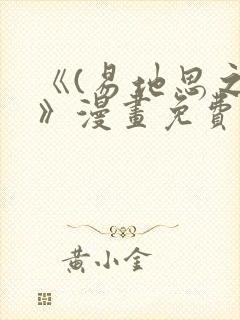 《(易地思之
》漫畫免費
黃小金